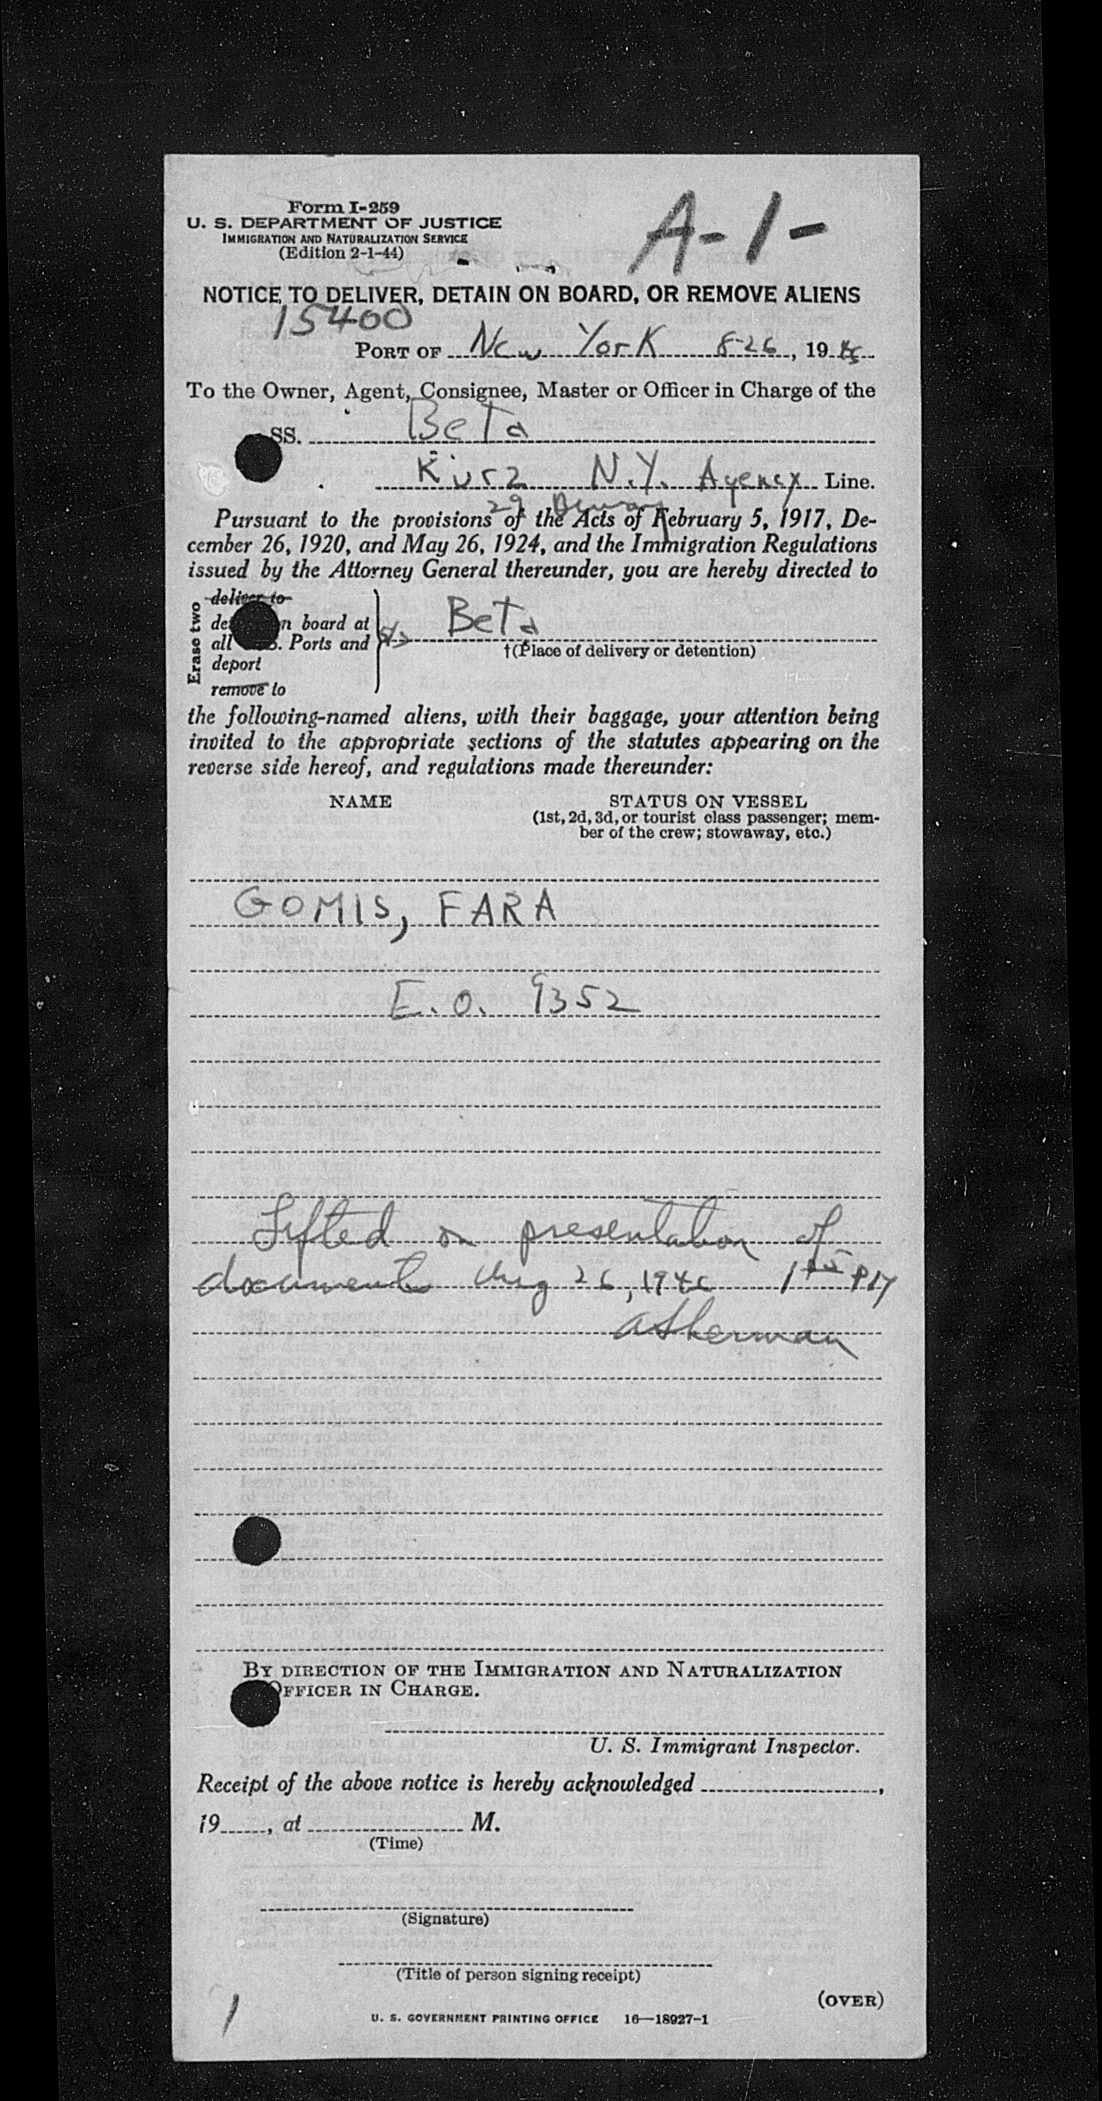 Form I-259
U. S. DEPARTMENT OF JUSTICE
IMMIGRATION AND NATURALIZATION SERVICE
(Edition 2-1-44)
A-1-
NOTICE TO DELIVER, DETAIN ON BOARD, OR REMOVE ALIENS
15400
PORT OF New York 8-26, 19
To the Owner, Agent, Consignee, Master or Officer in Charge of the
SS. Beta
Kurz N.Y. Agency Line.
29
Pursuant to the provisions of the Acts of February 5, 1917, De-
cember 26, 1920, and May 26, 1924, and the Immigration Regulations
issued by the Attorney General thereunder, you are hereby directed to
Erase two
deliver to
board at
all Ports and
deport
remove to
Beta
†(Place of delivery or detention)
the following-named aliens, with their baggage, your attention being
invited to the appropriate sections of the statutes appearing on the
reverse side hereof, and regulations made thereunder:
NAME
STATUS ON VESSEL
(1st, 2d, 3d, or tourist class passenger; mem-
ber of the crew; stowaway, etc.)
GOMIS, FARA
E.O. 9352
Lifted on presentation of
documents Aug 26, 1946 1 PM
ASherman
BY DIRECTION OF THE IMMIGRATION AND NATURALIZATION
OFFICER IN CHARGE.
U. S. Immigrant Inspector.
Receipt of the above notice is hereby acknowledged ,
19 , at M.
(Time)
(Signature)
(Title of person signing receipt)
(OVER)
U. S. GOVERNMENT PRINTING OFFICE 16—18927-1